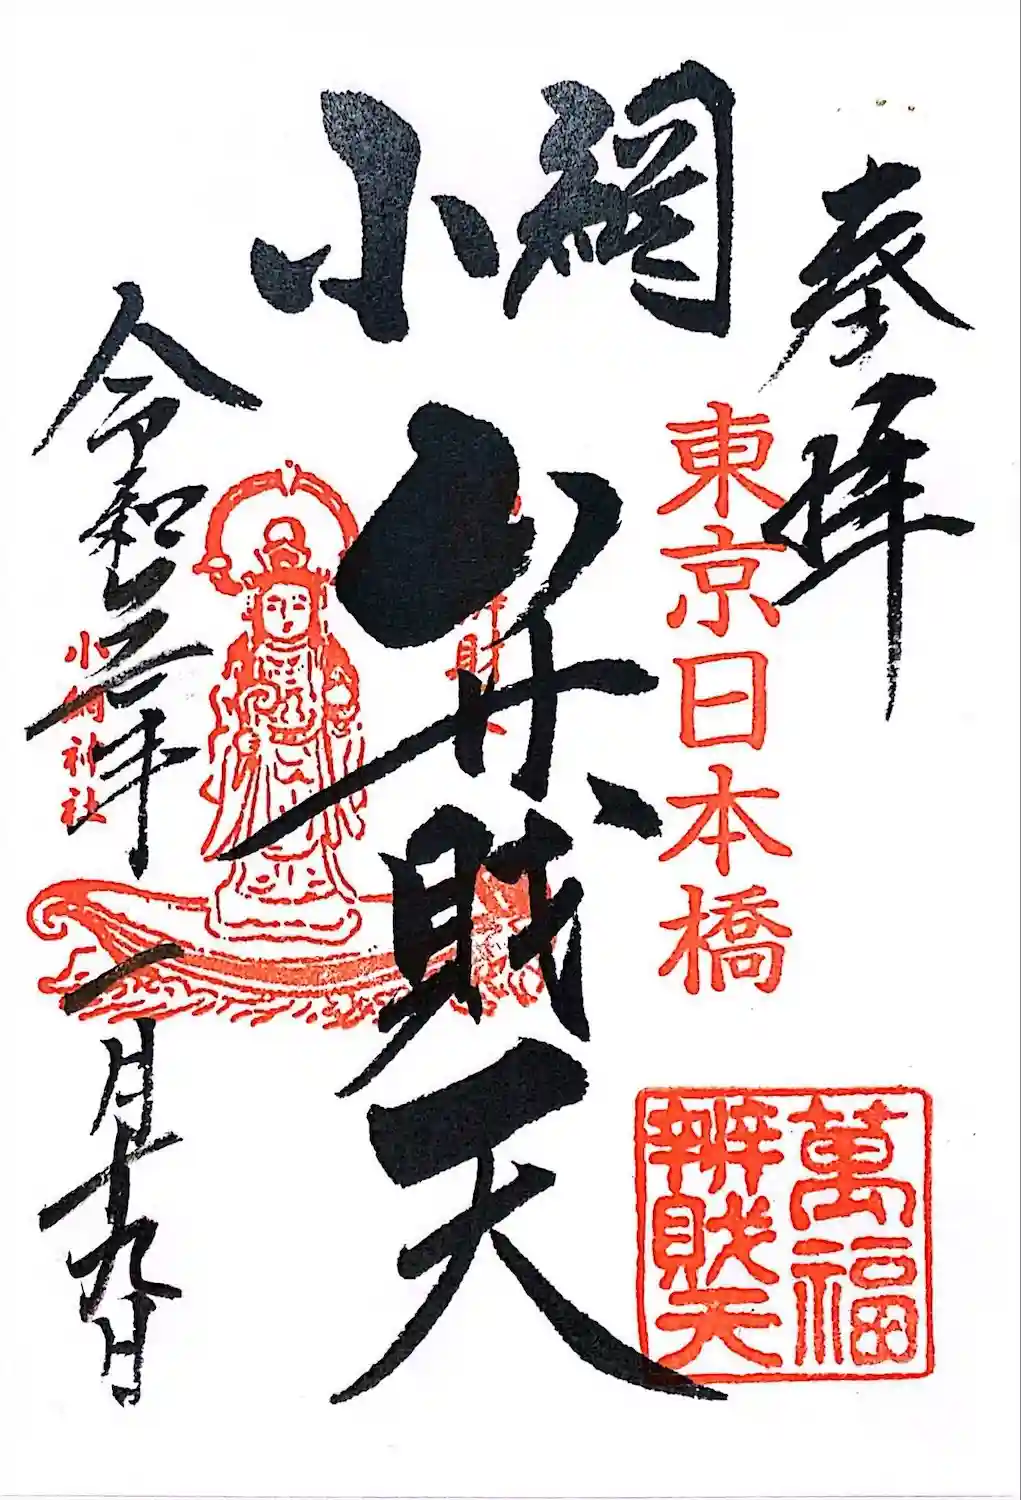 奉拝
東京日本橋
小網
弁財天
萬福
辨財天
小網神社
令和三年一月十九日